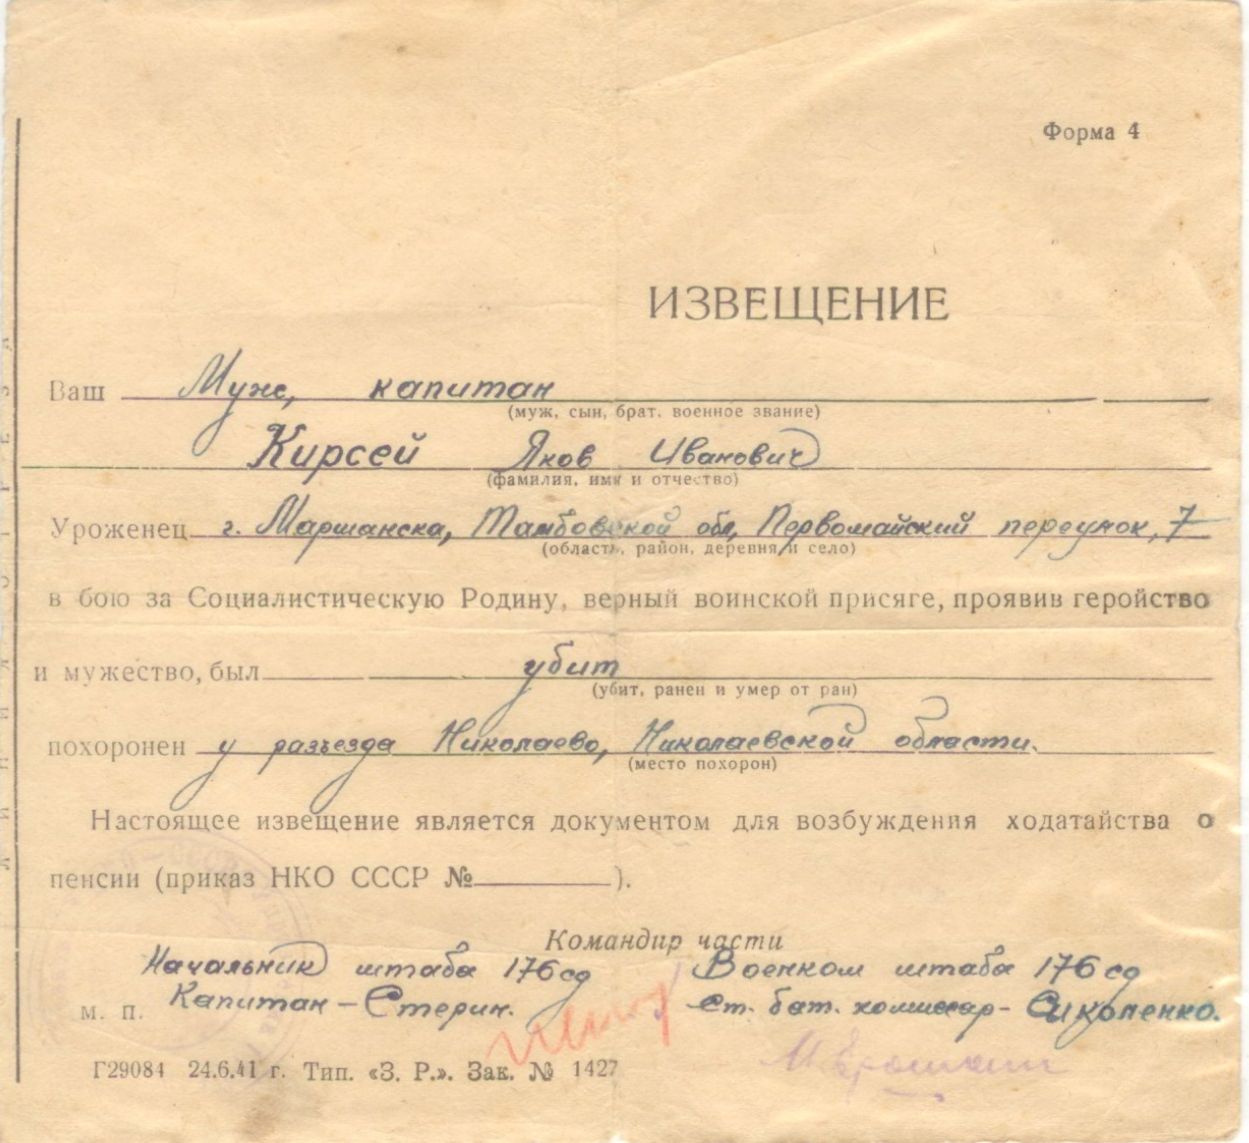 Форма 4
ИЗВЕЩЕНИЕ
Ваш Муж, капитан
(муж, сын, брат, военное звание)
Кирсей Яков Иванович
(фамилия, имя и отчество)
Уроженец г. Маршанска, Тамбовской обл, Первомайский переулок, 7
(область, район, деревня и село)
в бою за Социалистическую Родину, верный воинской присяге, проявив геройство
и мужество, был убит
(убит, ранен и умер от ран)
похоронен у разъезда Николаево, Николаевской области.
(место похорон)
Настоящее извещение является документом для возбуждения ходатайства о
пенсии (приказ НКО СССР № ).
Командир части
Начальник штаба 176 сд Военком штаба 176 сд
м. п. Капитан – Стерин. Ст. бат. комиссар – Сикопенко.
Г29084 24.6.41 г. Тип. «З. Р.». Зак. № 1427